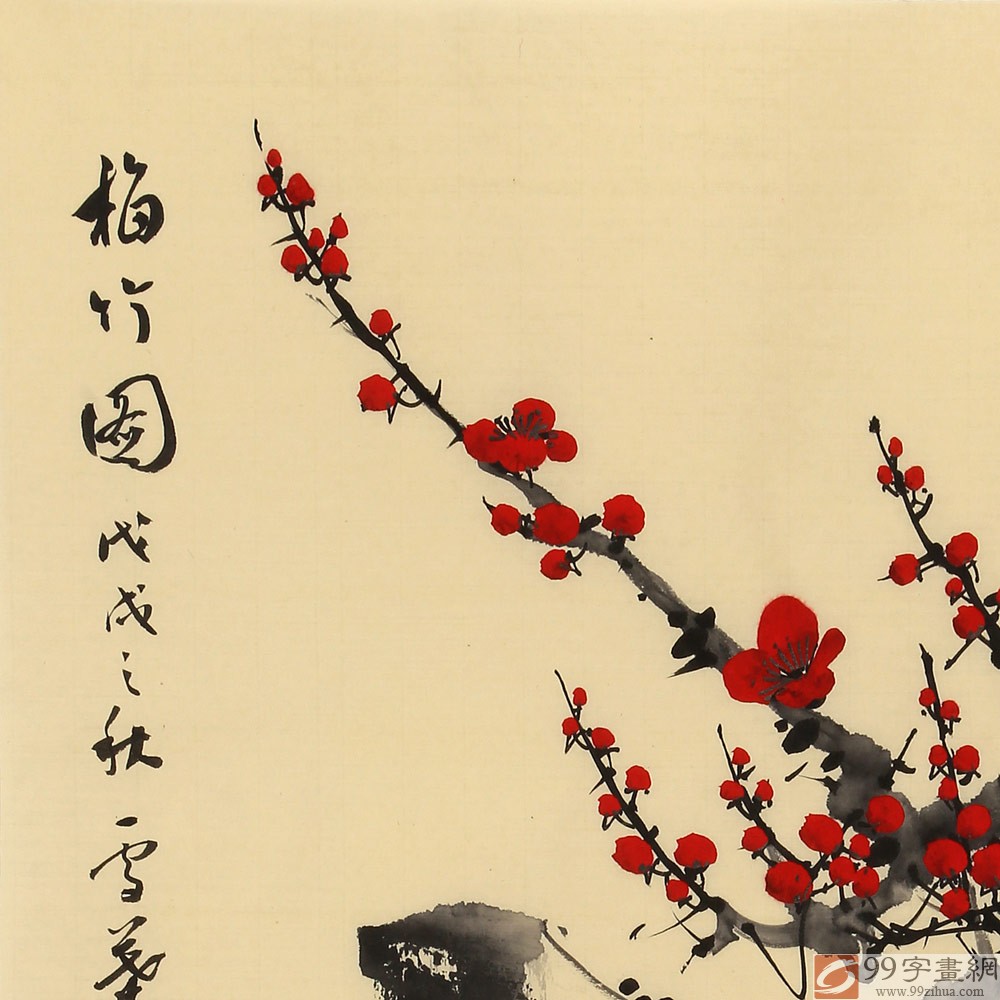 梅竹图戊戌之秋雪
99字畫網
www.99zihua.com